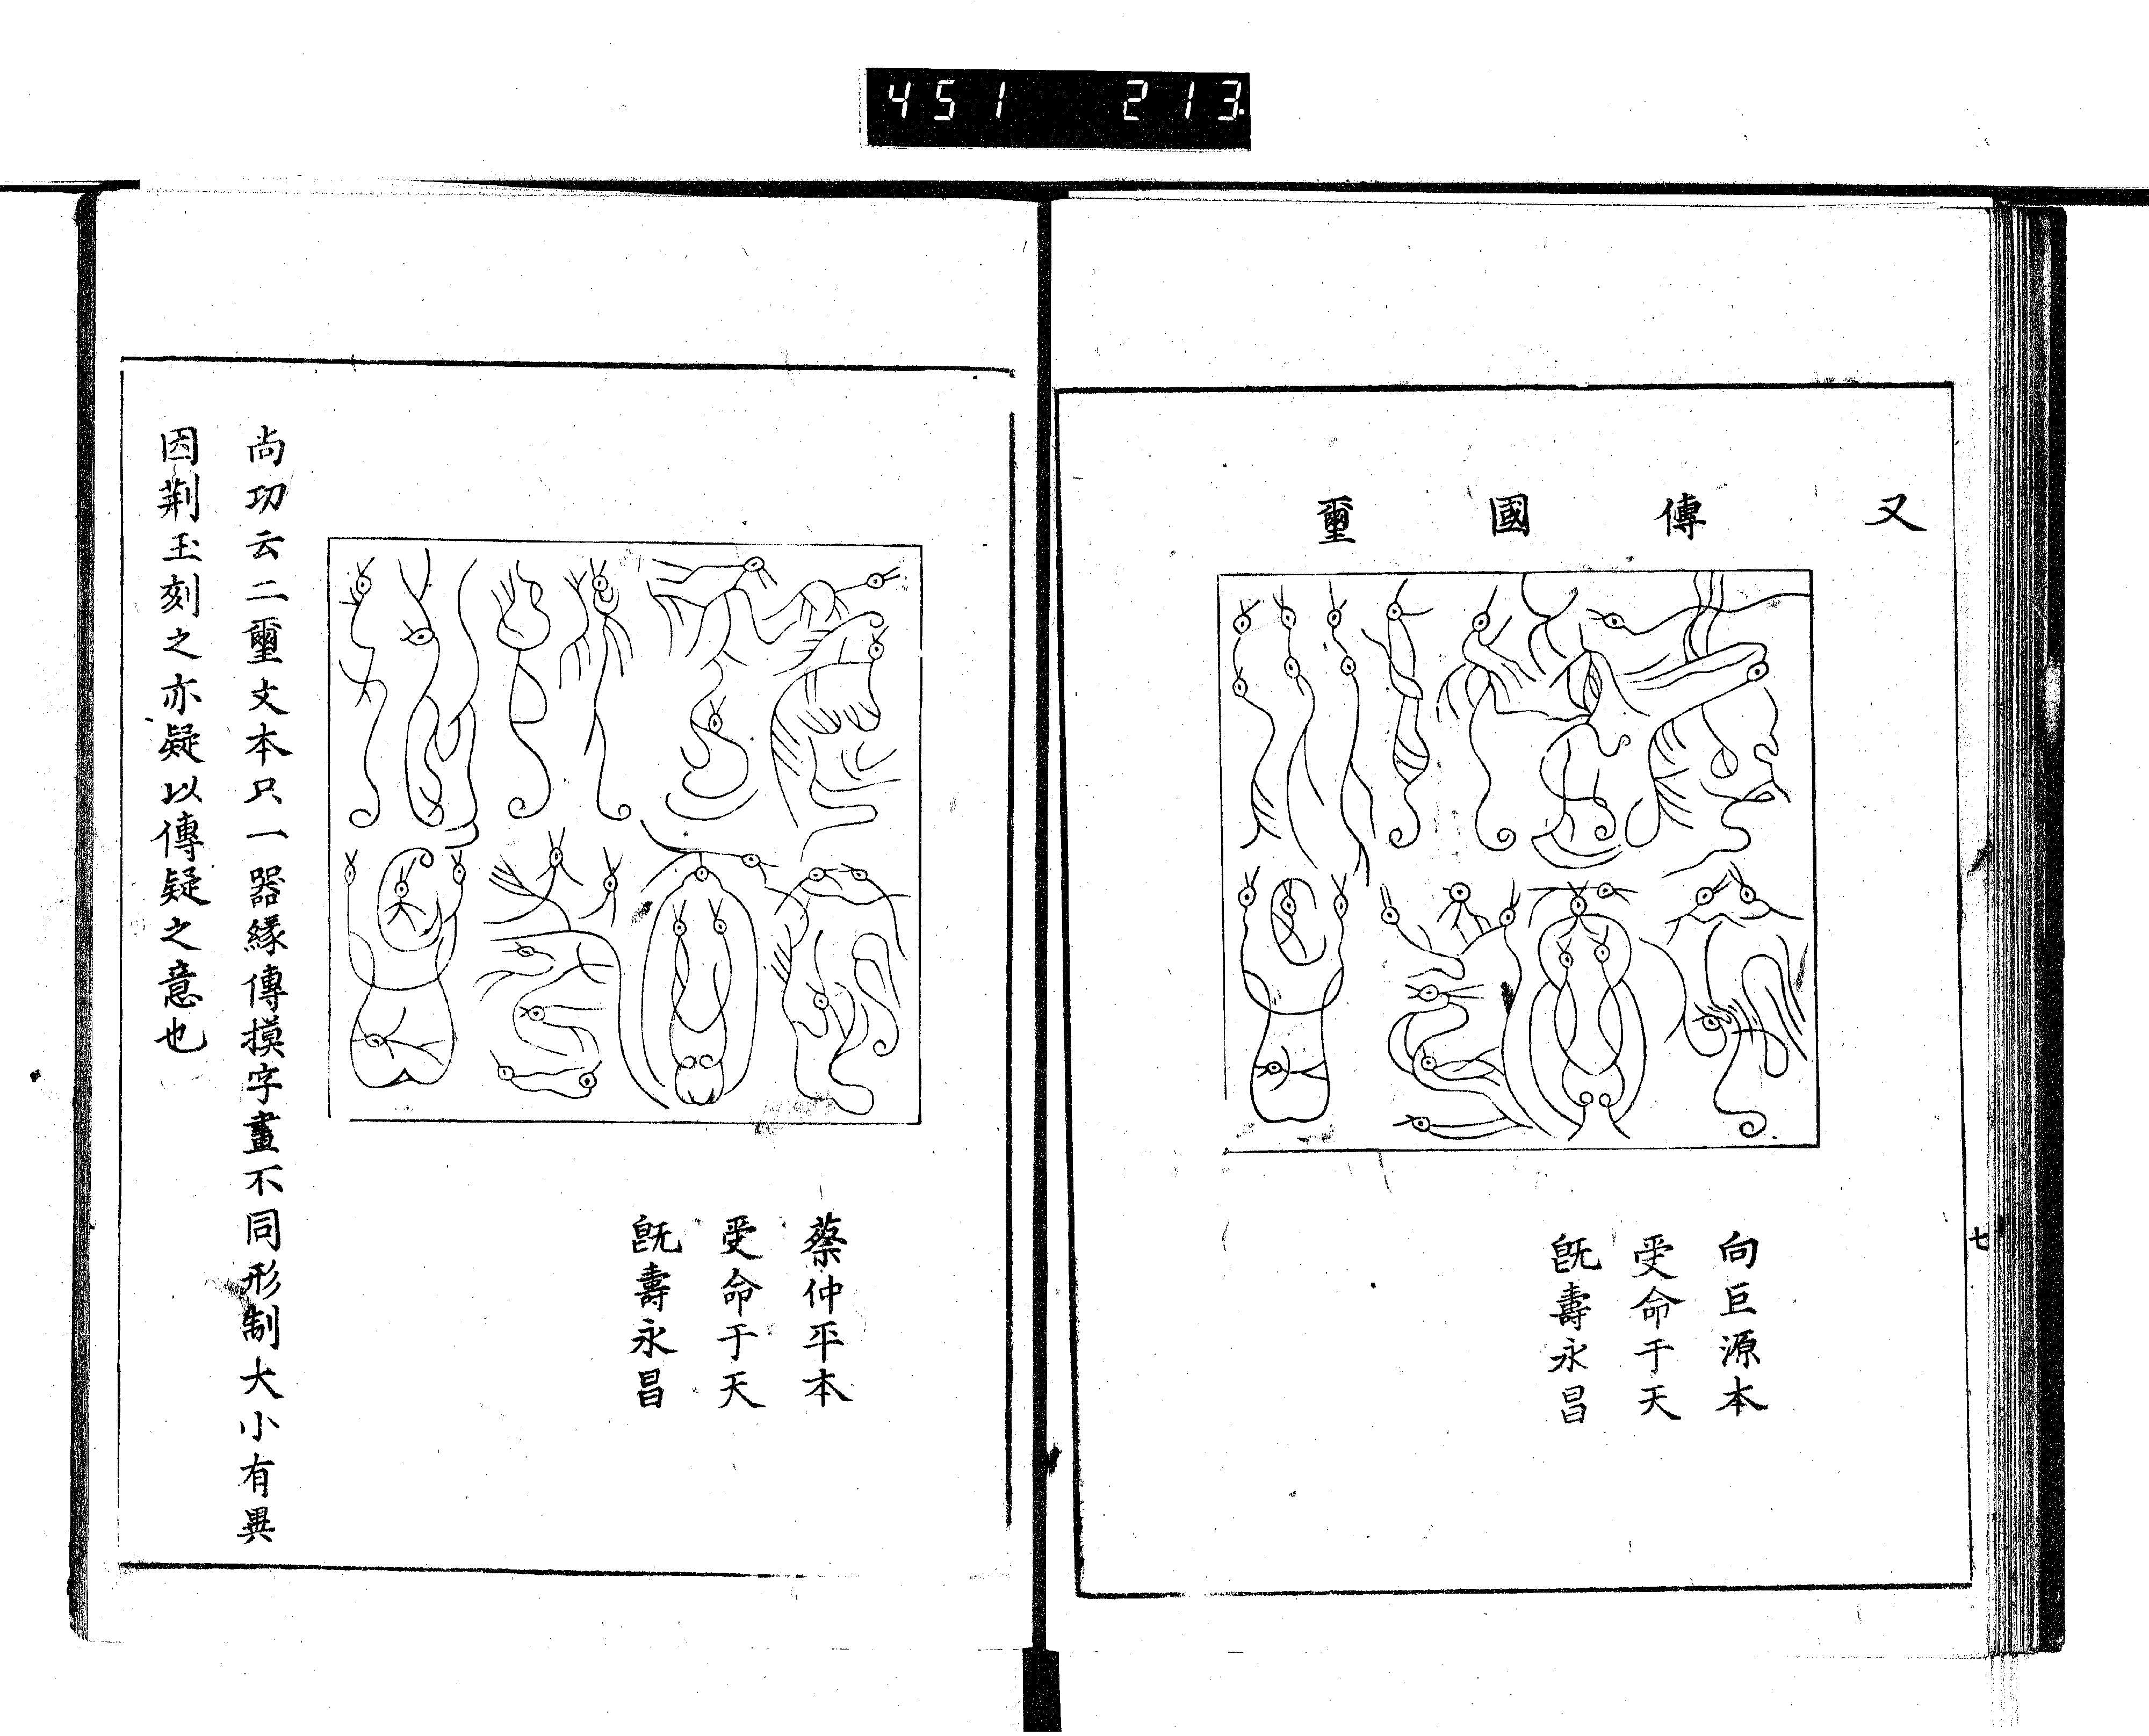 451 213
又 傳 國 璽
向巨源本
受命于天
旣壽永昌
七
蔡仲平本
受命于天
旣壽永昌
尚功云二璽文本只一器緣傳摸字畫不同形制大小有異
因荆玉刻之亦疑以傳疑之意也